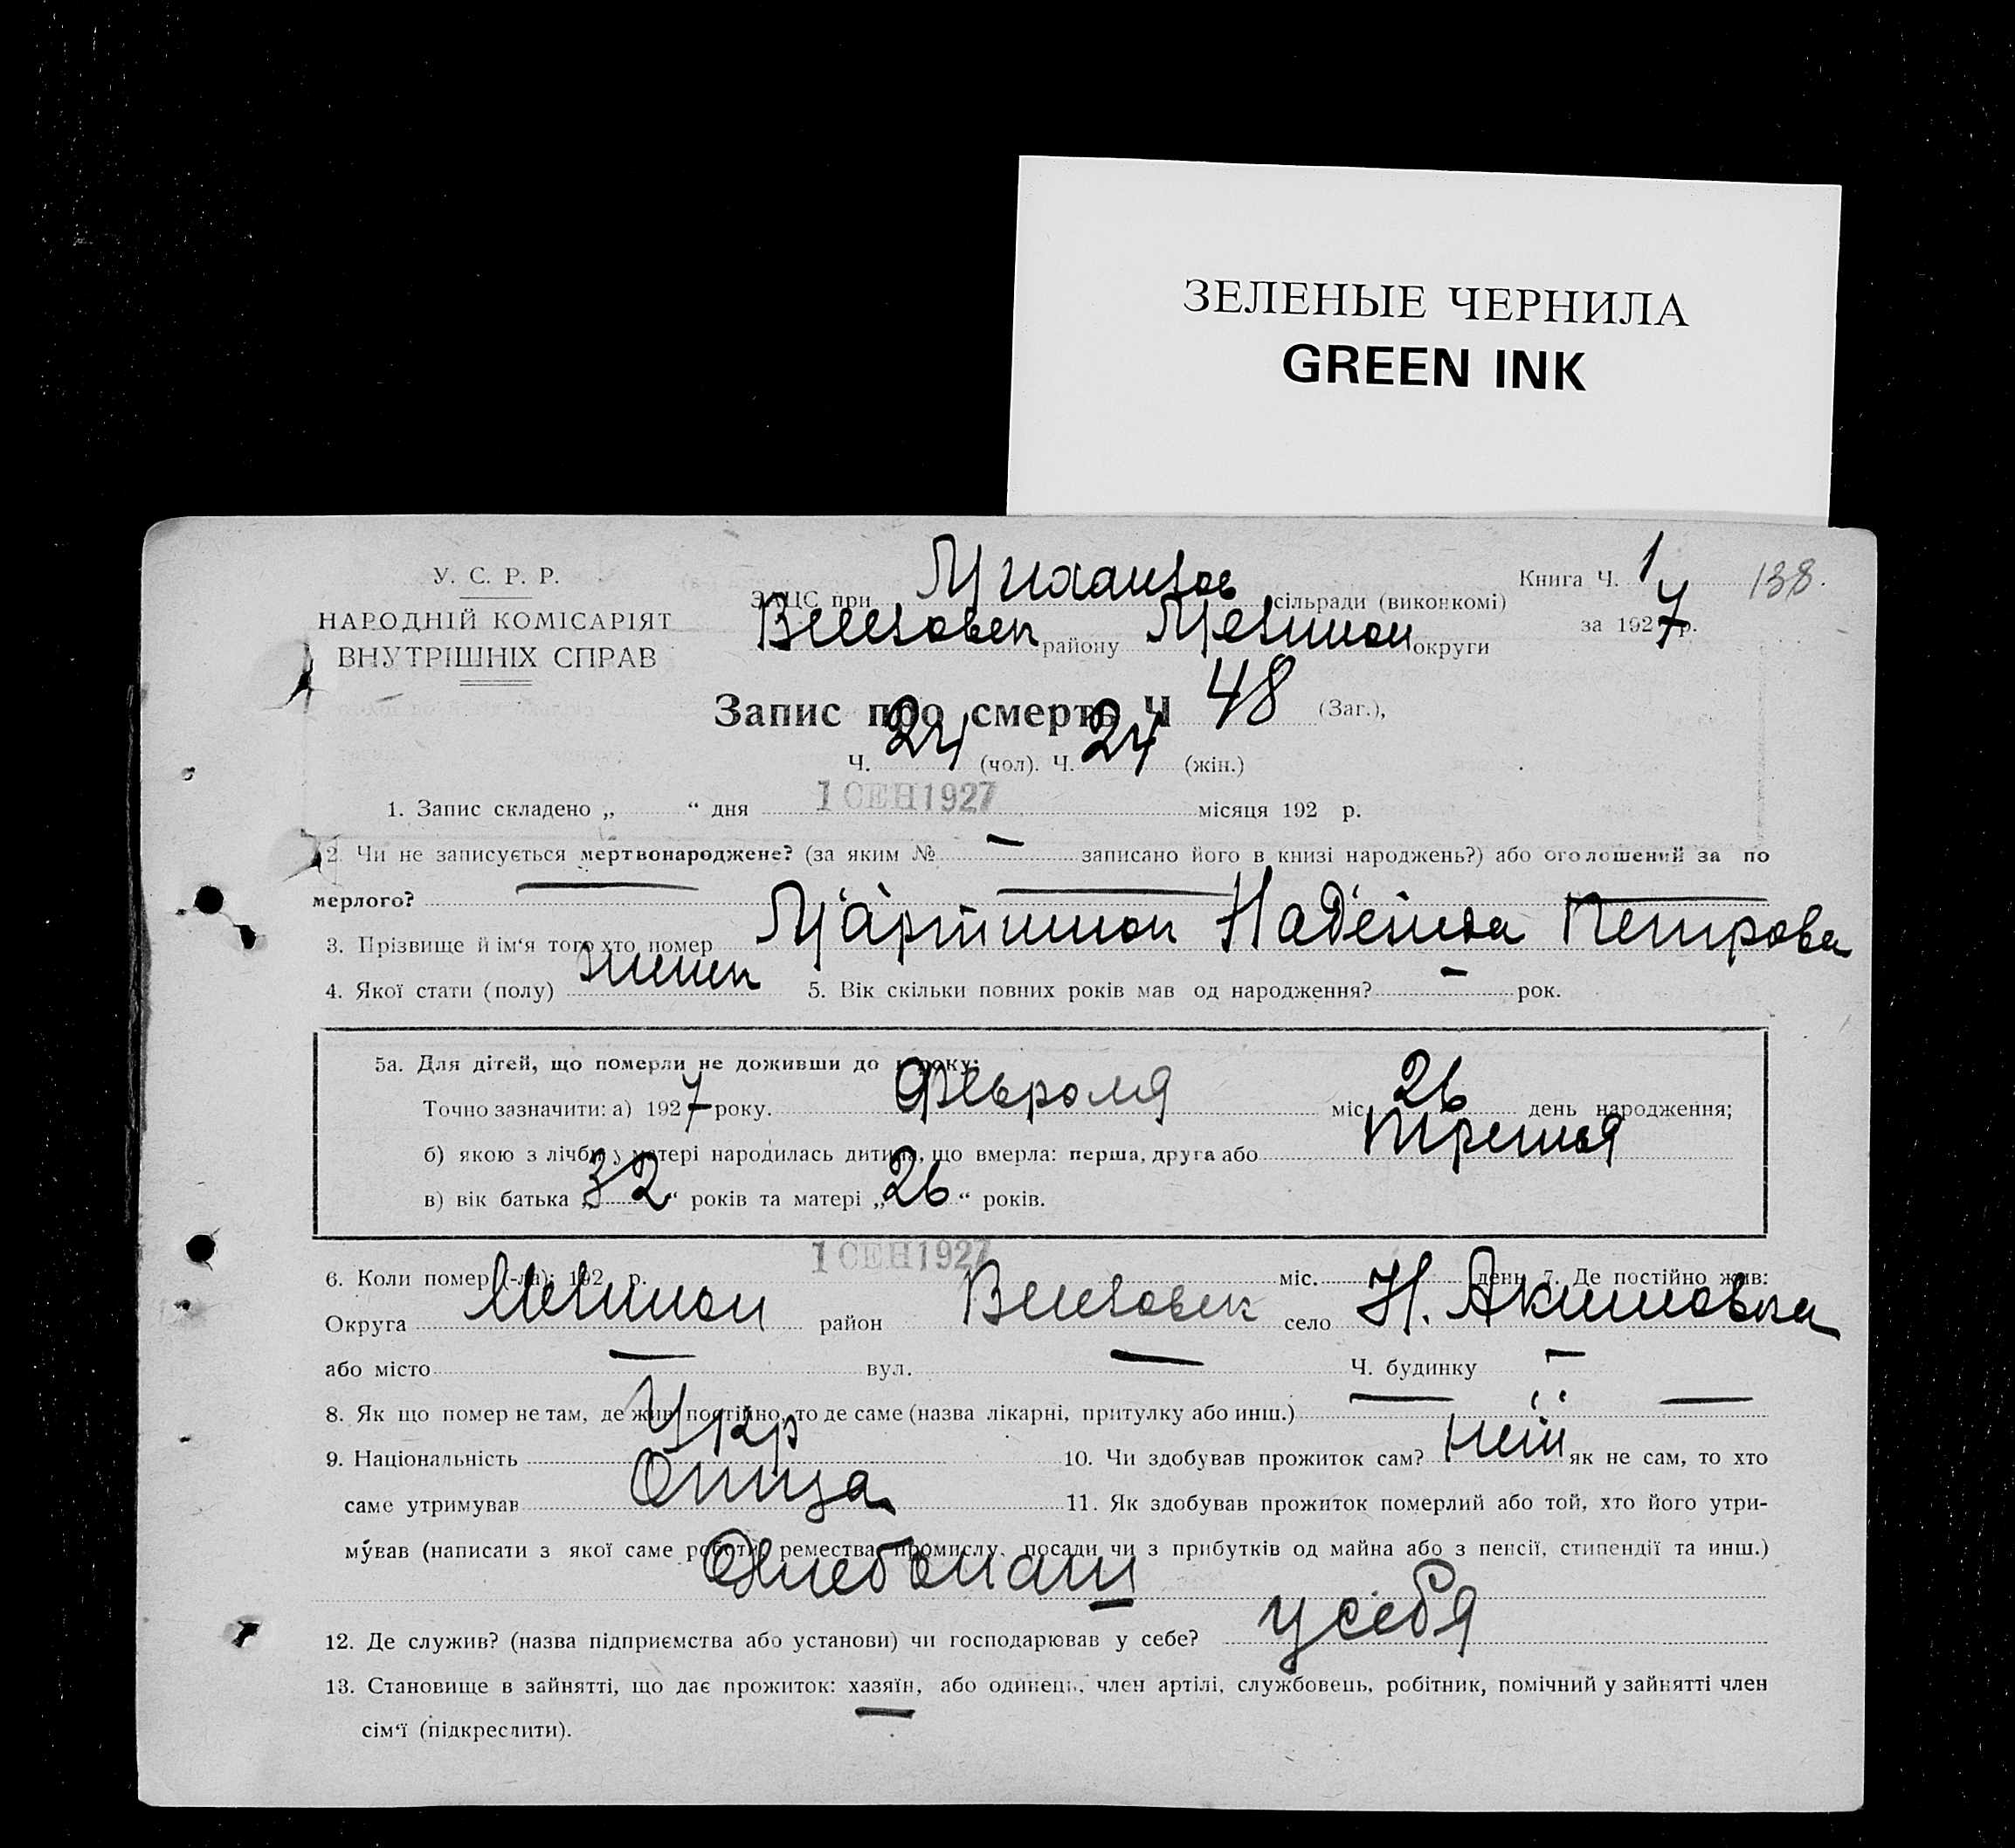 ЗЕЛЕНЫЕ ЧЕРНИЛА
GREEN INK
У. С. Р. Р.
НАРОДНІЙ КОМІСАРІЯТ
ВНУТРІШНІХ СПРАВ
ЗАЦС при Михайлов сільради (виконкомі)
района Мелитоп округи
Книга Ч. 1 138.
за 1927 р.
Запис про смерть Ч 48 (Заг.),
Ч. 24 (чол). Ч. 24 (жін.)
1. Запис складено „ “ дня 1 СЕН 1927 місяця 192 р.
2. Чи не записується мертвонароджене? (за яким № — записано його в книзі народжень?) або оголошений за по
мерлого?
3. Прізвище й ім‘я того хто помер Надежда Петрова
4. Якої стати (полу) женск 5. Вік скільки повних років мав од народження? — рок.
5а. Для дітей, що померли не доживши до 1 року:
Точно зазначити: а) 1927 року. Февраля міс. 26 день народження;
б) якою з лічби у матері народилась дитина, що вмерла: перша, друга або третья
в) вік батька „32“ років та матері „26“ років.
6. Коли помер (-ла): 192 р. 1 СЕН 1927 міс. день 7. Де постійно жив:
Округа Мелитоп район село Н. Акимовка
або місто — вул. — Ч. будинку —
8. Як що помер не там, де жив постійно, то де саме (назва лікарні, притулку або инш.) —
9. Національність Укр 10. Чи здобував прожиток сам? нет як не сам, то хто
саме утримував Отца 11. Як здобував прожиток померлий або той, хто його утри-
мував (написати з якої саме роботи, ремества, промислу, посади чи з прибутків од майна або з пенсії, стипендії та инш.)
Хлебопаш
12. Де служив? (назва підприємства або установи) чи господарював у себе? у себя
13. Становище в зайнятті, що дає прожиток: хазяїн, або одинець, член артілі, службовець, робітник, помічний у зайнятті член
сім‘ї (підкреслити).